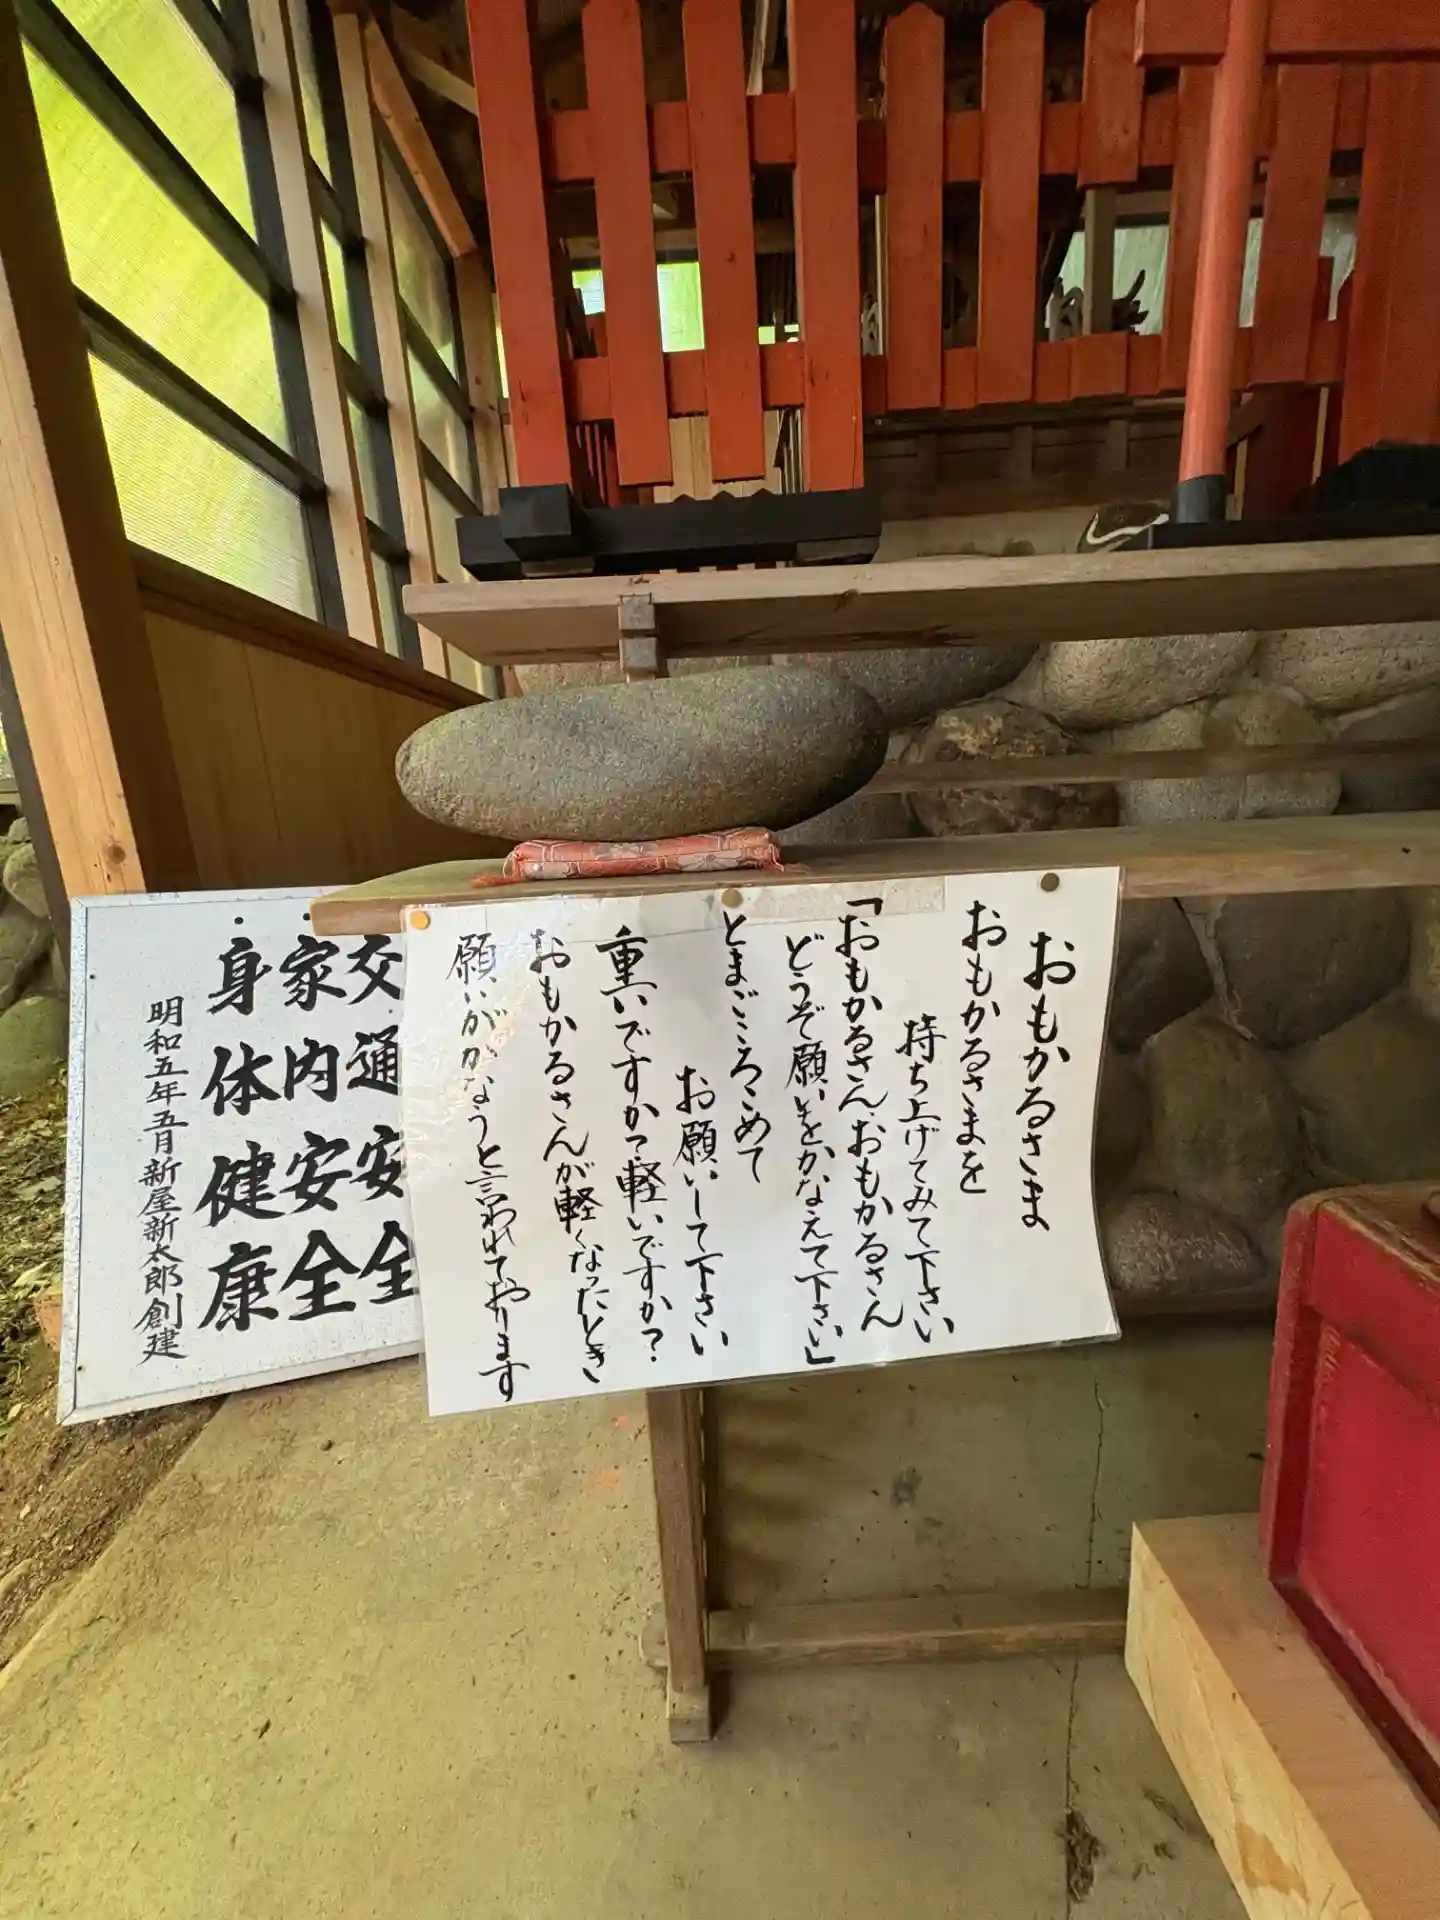 おもかるさま
おもかるさまを
持ち上げてみて下さい
「おもかるさん、おもかるさん
どうぞ願いをかなえて下さい」
とまごころこめて
お願いして下さい
重いですか？軽いですか？
おもかるさんが軽くなったとき
願いがかなうと言われております
交通安全
・家内安全
・身体健康
明和五年五月新屋新太郎創建